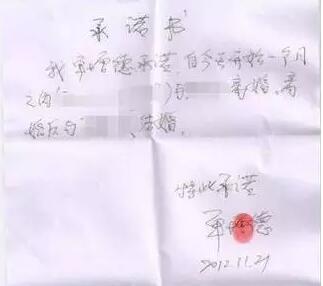 承诺书
我单增德承诺,自今天开始一个月
之内 与 离婚,离
婚后与 结婚。
特此承诺
单增德
2012.11.21